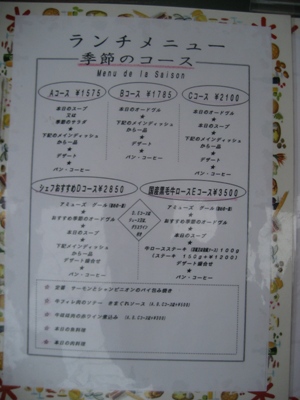 ランチメニュー
季節のコース
Menu de la Saison
Aコース ¥1575
Bコース ¥1785
Cコース ¥2100
本日のスープ
又は
季節のサラダ
★
下記のメインディッシュ
から一品
★
デザート
★
パン・コーヒー
本日のオードヴル
★
下記のメインディッシュ
から一品
★
デザート
★
パン・コーヒー
本日のオードヴル
★
本日のスープ
★
下記のメインディッシュ
から一品
★
デザート
★
パン・コーヒー
シェフおすすめDコース¥2850
国産黒毛牛ロースEコース¥3500
アミューズ グール
★
おすすめ季節のオードヴル
★
本日のスープ
★
下記メインディッシュ
から一品
★
デザート盛合せ
★
パン・コーヒー
アミューズ グール
★
おすすめ季節のオードヴル
★
本日のスープ
★
牛ロースステーキ
(ステーキ 150g+¥1200)
デザート盛合せ
★
パン・コーヒー
サーモンとシャンピニオンのパイ包み焼き
牛フィレ肉のソテー きまぐれソース
本日のお魚料理
本日のお肉料理